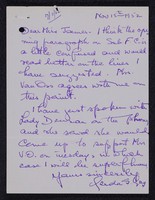 Nov 12th 1912
Dear Miss James. I think the ope-
ning paragraph in Sub. F. C. is
a little confused and would
read better on the lines I
have suggested. Mrs
Van Os agrees with me on
this point.
I have just spoken with
Lady Denman on the phone
and she said she would
come up to support Mrs
V.O. on Tuesday, in which
case I will be superfluous
Yours sincerely